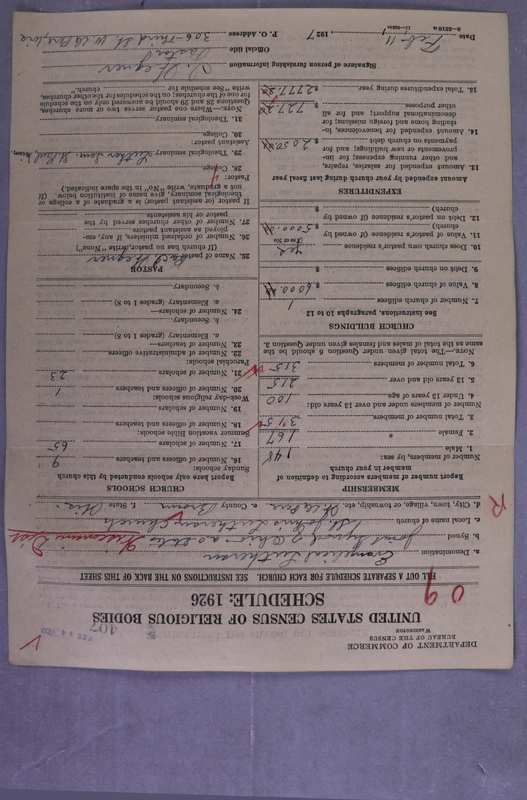 DEPARTMENT OF COMMERCE
BUREAU OF THE CENSUS
WASHINGTON
407
UNITED STATES CENSUS OF RELIGIOUS BODIES
SCHEDULE: 1926
FILL OUT A SEPARATE SCHEDULE FOR EACH CHURCH. SEE INSTRUCTIONS ON THE BACK OF THIS SHEET
a. Denomination Evangelical Lutheran
b. Synod Joint Synod of Ohio a. o. States Wisconsin Dist
c. Local name of church St. John's Lutheran Church
d. City, town, village, or township, etc. e. County Brown f. State Wis.
R
MEMBERSHIP
Report number of members according to definition of member in your church
Number of members, by sex:
1. Male 148
2. Female 167
3. Total number of members 315
Number of members under and over 13 years old:
4. Under 13 years of age 100
5. 13 years old and over 215
6. Total number of members 315
NOTE.—The total given under Question 6 should be the same as the total of males and females given under Question 3.
CHURCH BUILDINGS
See instructions, paragraphs 10 to 12
7. Number of church edifices 1
8. Value of church edifices $ 6000.00
9. Debt on church edifices $
10. Does church own pastor's residence Yes
(Yes or No)
11. Value of pastor's residence (if owned by church) $ 5000.00
12. Debt on pastor's residence (if owned by church) $
EXPENDITURES
Amount expended by your church during last fiscal year
13. Amount expended for salaries, repairs, and other running expenses; for improvements or new buildings; and for payments on church debt $
14. Amount expended for benevolences, including home and foreign missions; for denominational support; and for all other purposes $
15. Total expenditures during year $
CHURCH SCHOOLS
Report here only schools conducted by this church
Sunday schools:
16. Number of officers and teachers 9
17. Number of scholars 65
Summer vacation Bible schools:
18. Number of officers and teachers
19. Number of scholars
Week-day religious schools:
20. Number of officers and teachers 1
21. Number of scholars 23
Parochial schools:
22. Number of administrative officers
23. Number of teachers—
a. Elementary (grades 1 to 8)
b. Secondary
24. Number of scholars—
a. Elementary (grades 1 to 8)
b. Secondary
PASTOR
25. Name of pastor
(If church has no pastor, write "None")
26. Number of ordained ministers, if any, employed as assistant pastors
27. Number of other churches served by the pastor or his assistants
If pastor (or assistant pastor) is a graduate of a college or theological seminary, give name of institution (below). (If not a graduate, write "No" in the space indicated):
Pastor:
28. College
29. Theological seminary Luther Sem. St. Paul, Minn.
Assistant pastor:
30. College
31. Theological seminary
NOTE.—Where one pastor serves two or more churches, Questions 28 and 29 should be answered only on the schedule for one of the churches; on the schedules for the other churches, write "See schedule for church."
Signature of person furnishing information
Official title Pastor
P. O. Address 306 - Third St. W. De Pere, Wis
Date Feb 11, 1927